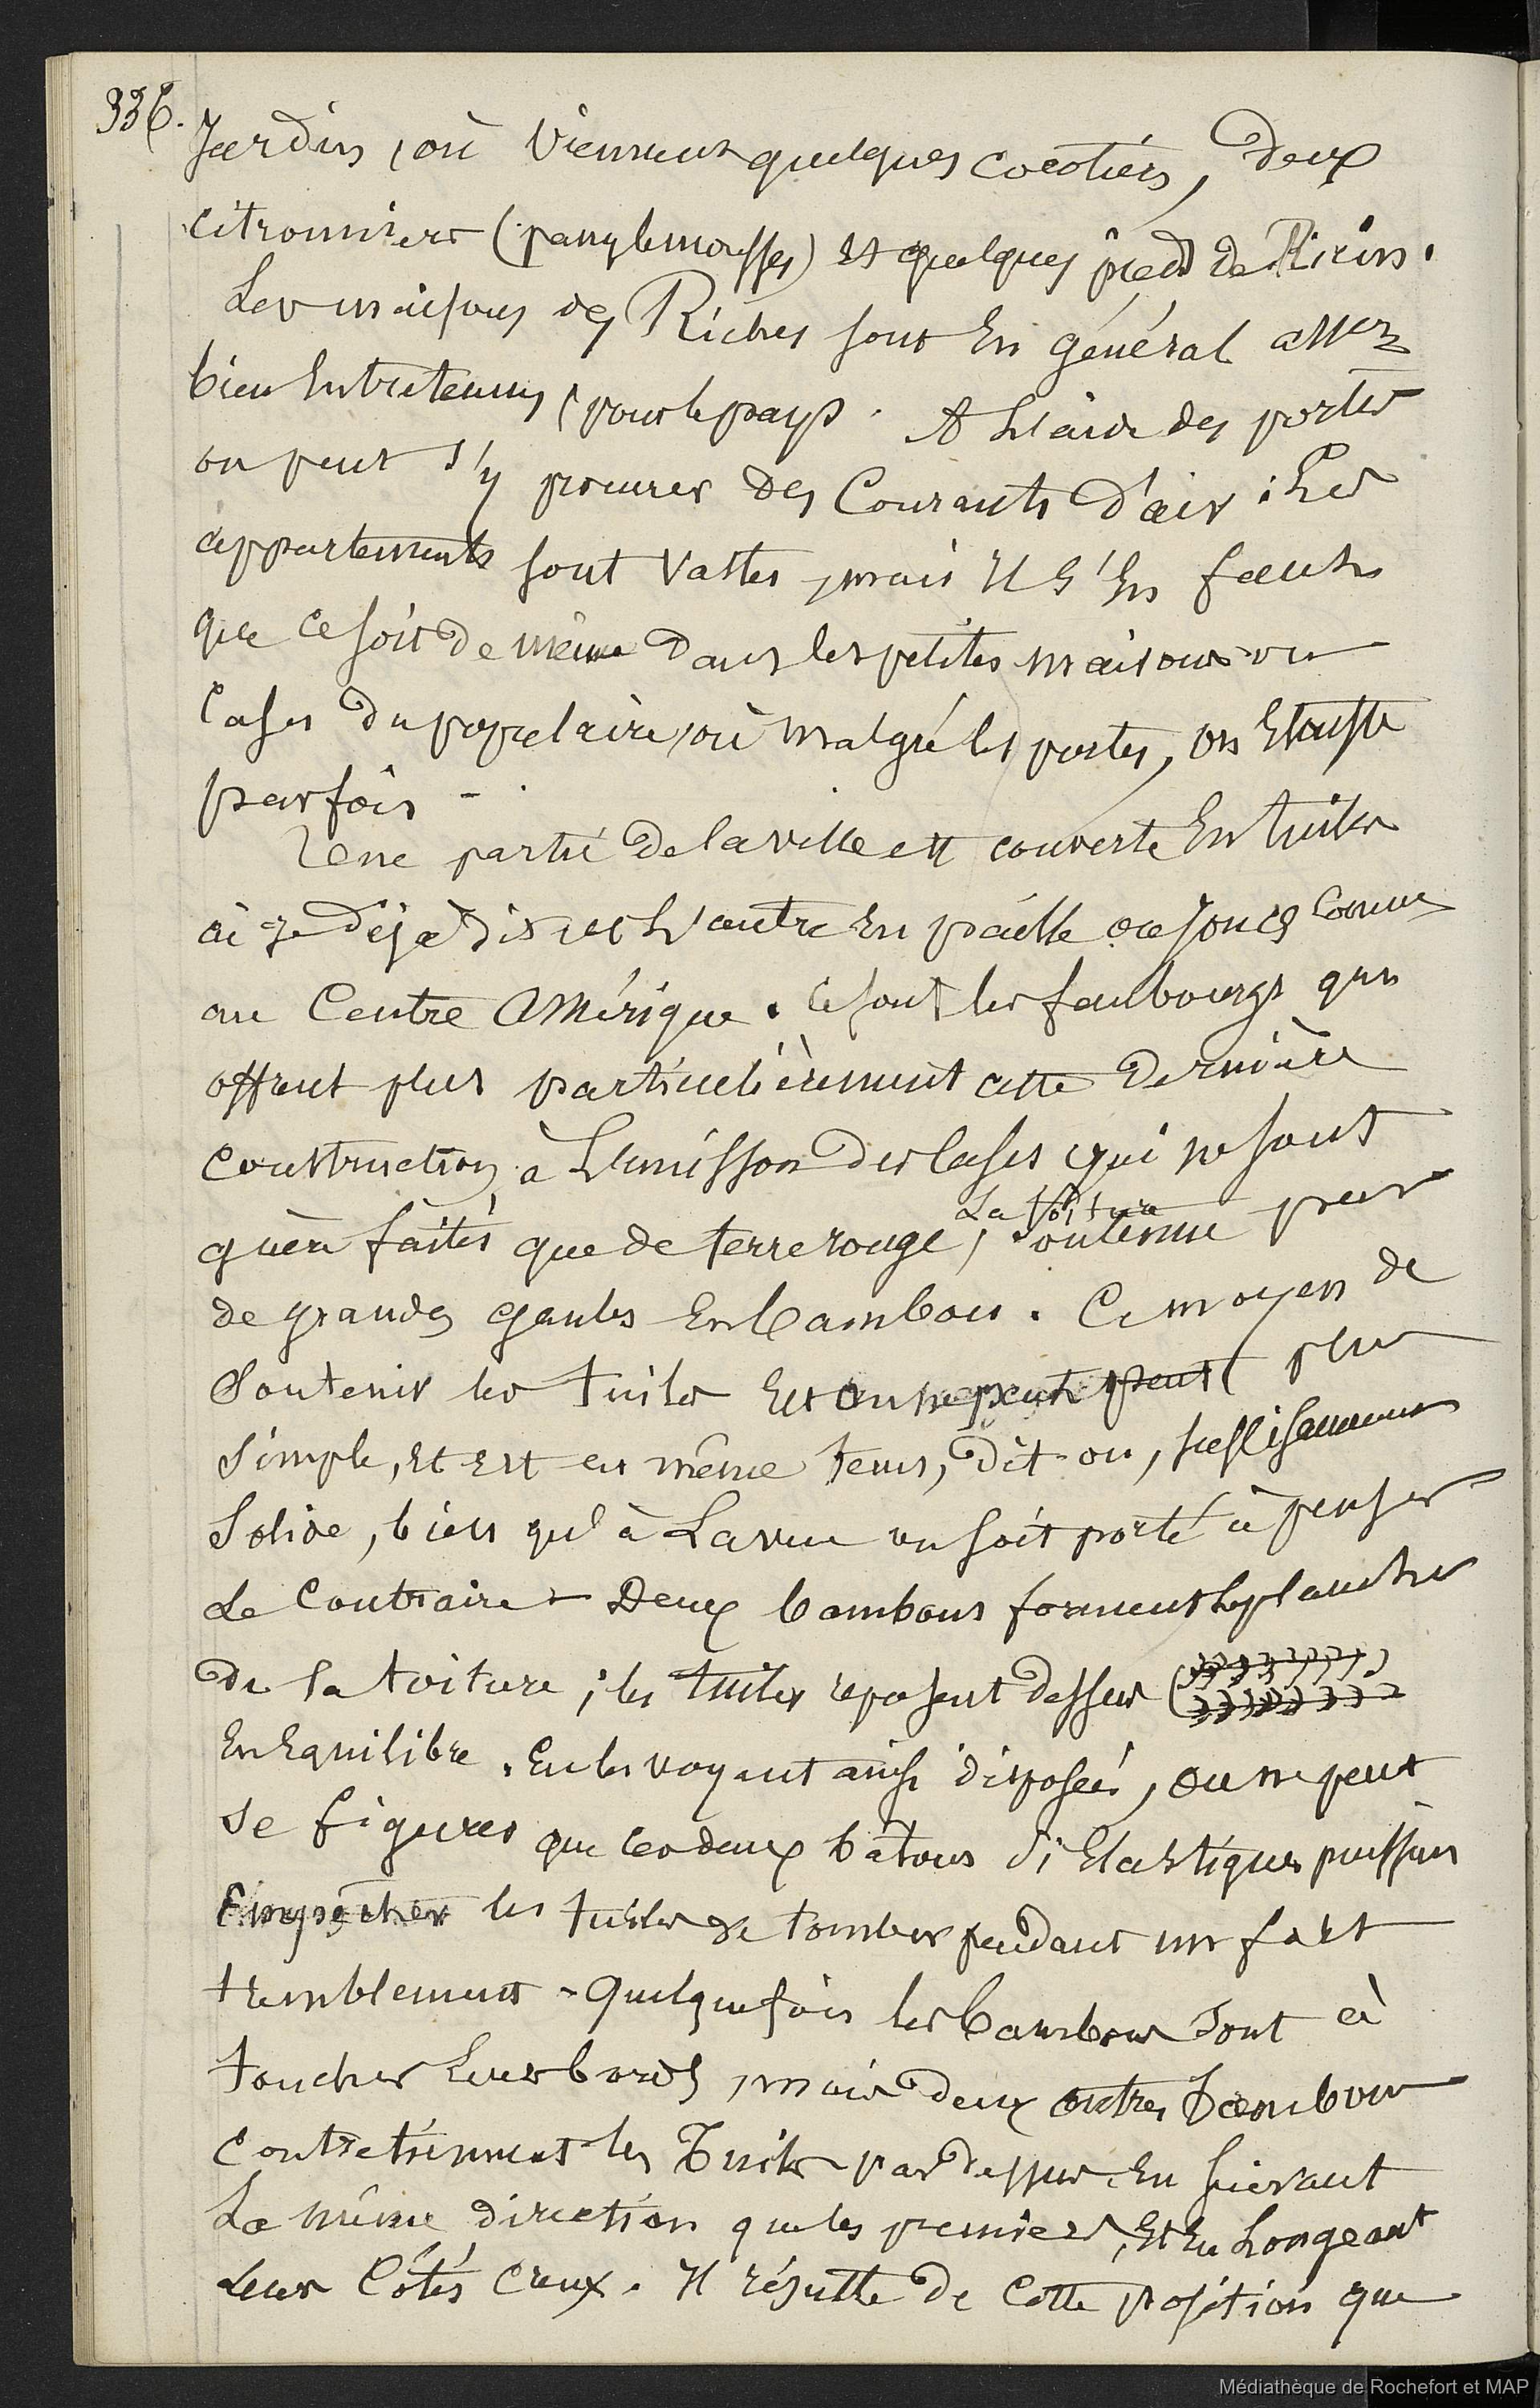 336.
Jardin, où viennent quelques cocotiers, deux
citronniers (pamplemousses) et quelques pieds de Ricins.
Les maisons des Riches sont En général assez
bien Entretenues, pour le pays. A L'aide des portes
on peut s'y procurer des Courants d'air : Les
appartements sont Vastes, mais Il S'En faut
que ce soit de même dans les petites maisons ou
Cases du populaire, où malgré les portes, on Etouffe
parfois -
Une partie de la ville est couverte En tuiles
ai-je déjà dit, et L'autre En paille ou joncs Comme
au Centre Amérique. Ce sont les faubourgs qui
offrent plus particulièrement cette dernière
Construction, à L'unisson des Cases qui ne sont
La Toiture
guère faites que de terre rouge, soutenue par
de grandes gaules En bambou. Ce moyen de
Soutenir les tuiles Est on ne peut plus
Simple, Et Est en même tems, dit-on, suffisamment
Solide, bien qu'à La vue on soit porté à penser
Le Contraire - Deux bambous forment le plancher
de la toiture ; les tuiles reposent dessus (
En Equilibre. En les voyant ainsi disposées, on ne peut
se figurer que ces deux bâtons si Elastiques puissent
Empêcher les tuiles de tomber pendant un fort
tremblement - Quelquefois les bambous sont à
toucher Leurs bords, mais deux autres bambous
Contretiennent les Tuiles par dessus, En suivant
La même direction que les premiers, Et En Longeant
Leurs Côtés Creux. Il résulte de Cette position que
Médiathèque de Rochefort et MAP